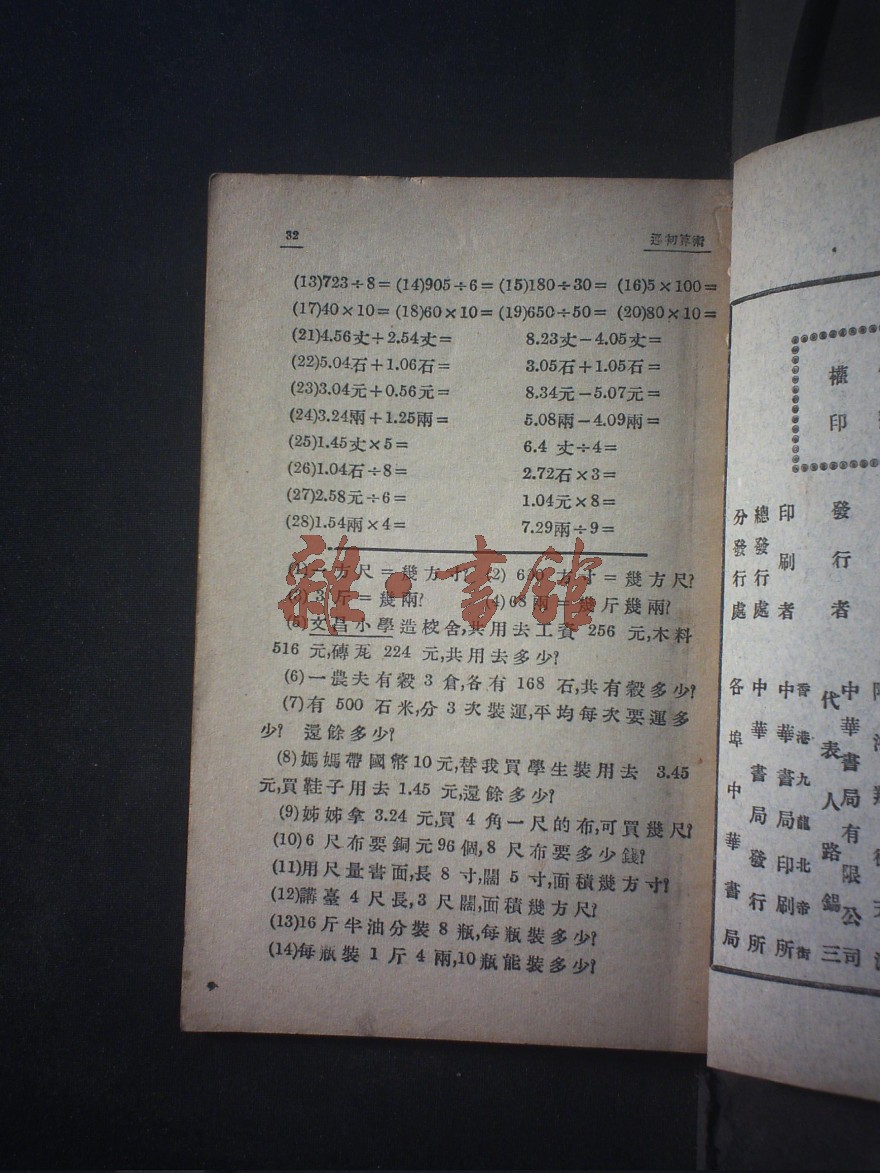 32
術算初逕
(13)723÷8= (14)905÷6= (15)180÷30= (16)5×100=
(17)40×10= (18)60×10= (19)650÷50= (20)80×10=
(21)4.56丈+2.54丈= 8.23丈-4.05丈=
(22)5.04石+1.06石= 3.05石+1.05石=
(23)3.04元+0.56元= 8.34元-5.07元=
(24)3.24兩+1.25兩= 5.08兩-4.09兩=
(25)1.45丈×5= 6.4 丈÷4=
(26)1.04石÷8= 2.72石×3=
(27)2.58元÷6= 1.04元×8=
(28)1.54兩×4= 7.29兩÷9=
(1)一方尺=幾方寸? (2) 600 方寸=幾方尺?
(3) 3斤=幾兩? (4)68兩=幾斤幾兩?
(5)文昌小學造校舍,共用去工資 256 元,木料
516 元,磚瓦 224 元,共用去多少?
(6)一農夫有穀 3 倉,各有 168 石,共有穀多少?
(7)有 500 石米,分 3 次裝運,平均每次要運多
少? 還餘多少?
(8)媽媽帶國幣10元,替我買學生裝用去 3.45
元,買鞋子用去 1.45 元,還餘多少?
(9)姊姊拿 3.24 元,買 4 角一尺的布,可買幾尺?
(10)6 尺布要銅元96個,8 尺布要多少錢?
(11)用尺量書面,長 8 寸,闊 5 寸,面積幾方寸?
(12)講臺 4 尺長,3 尺闊,面積幾方尺?
(13)16 斤半油分裝 8 瓶,每瓶裝多少?
(14)每瓶裝 1 斤 4 兩,10瓶能裝多少?
雜·書館
權印
發行者
中華書局有限公司
代表人路錫三
印刷者
香港九龍北帝街
中華書局印刷所
總發行處
中華書局發行所
分發行處
各埠中華書局